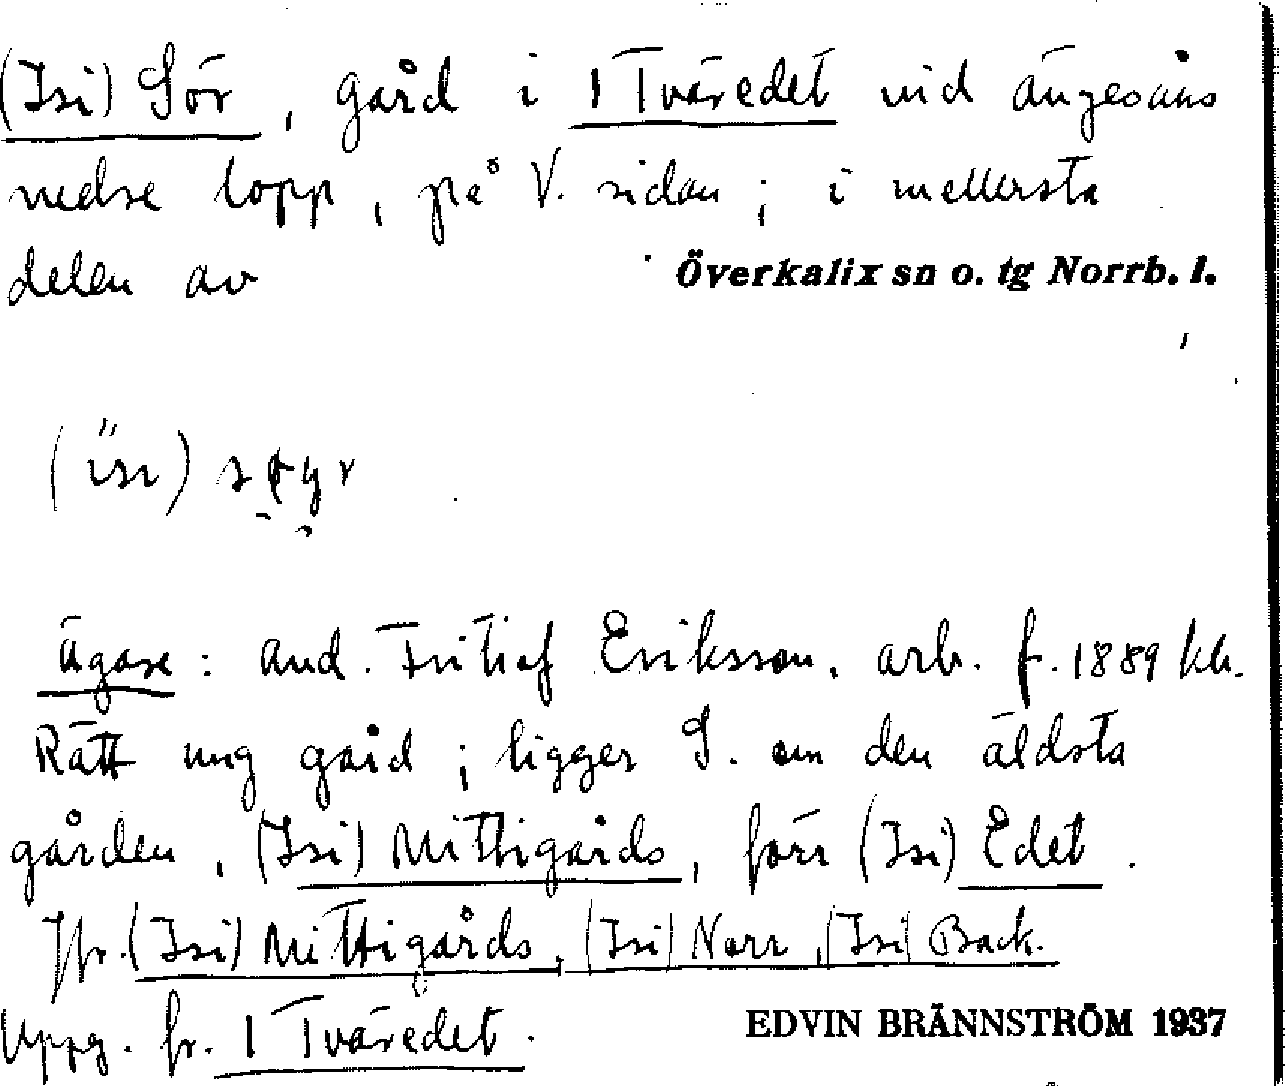 (Isi) Sör, gård i 1 Tväredet vid ängesåns
nedre lopp, på V. sidan; i mellersta
delen av Överkalix sn o. tg Norrb. l.
Ägare: And. Fritiof Eriksson, arb. f. 1889 kh.
Rätt ung gård; ligger S. om den äldsta
gården, (Isi) Mittigårds, förr (Isi) Edet.
Jfr. (Isi) Mittigårds, (Isi) Norr, (Isi) Back.
Uppg. fr. 1 Tväredet.
EDVIN BRÄNNSTRÖM 1937